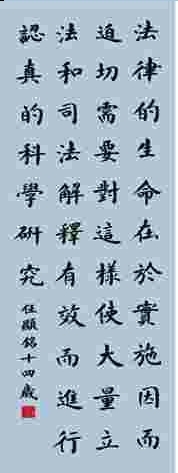 法律的生命在於實施因而
迫切需要對這樣使大量立
法和司法解釋有效而進行
認真的科學研究
任顯銘十四歲